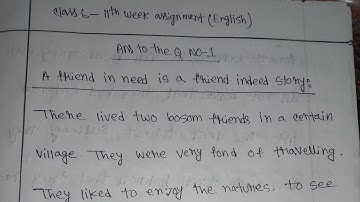 Class 6 - 11th week assignment (English)
Ans to the Q. NO-1
A friend in need is a friend indeed story:
There lived two bosom friends in a certain
village. They were very fond of travelling.
They liked to enjoy the natures, to see